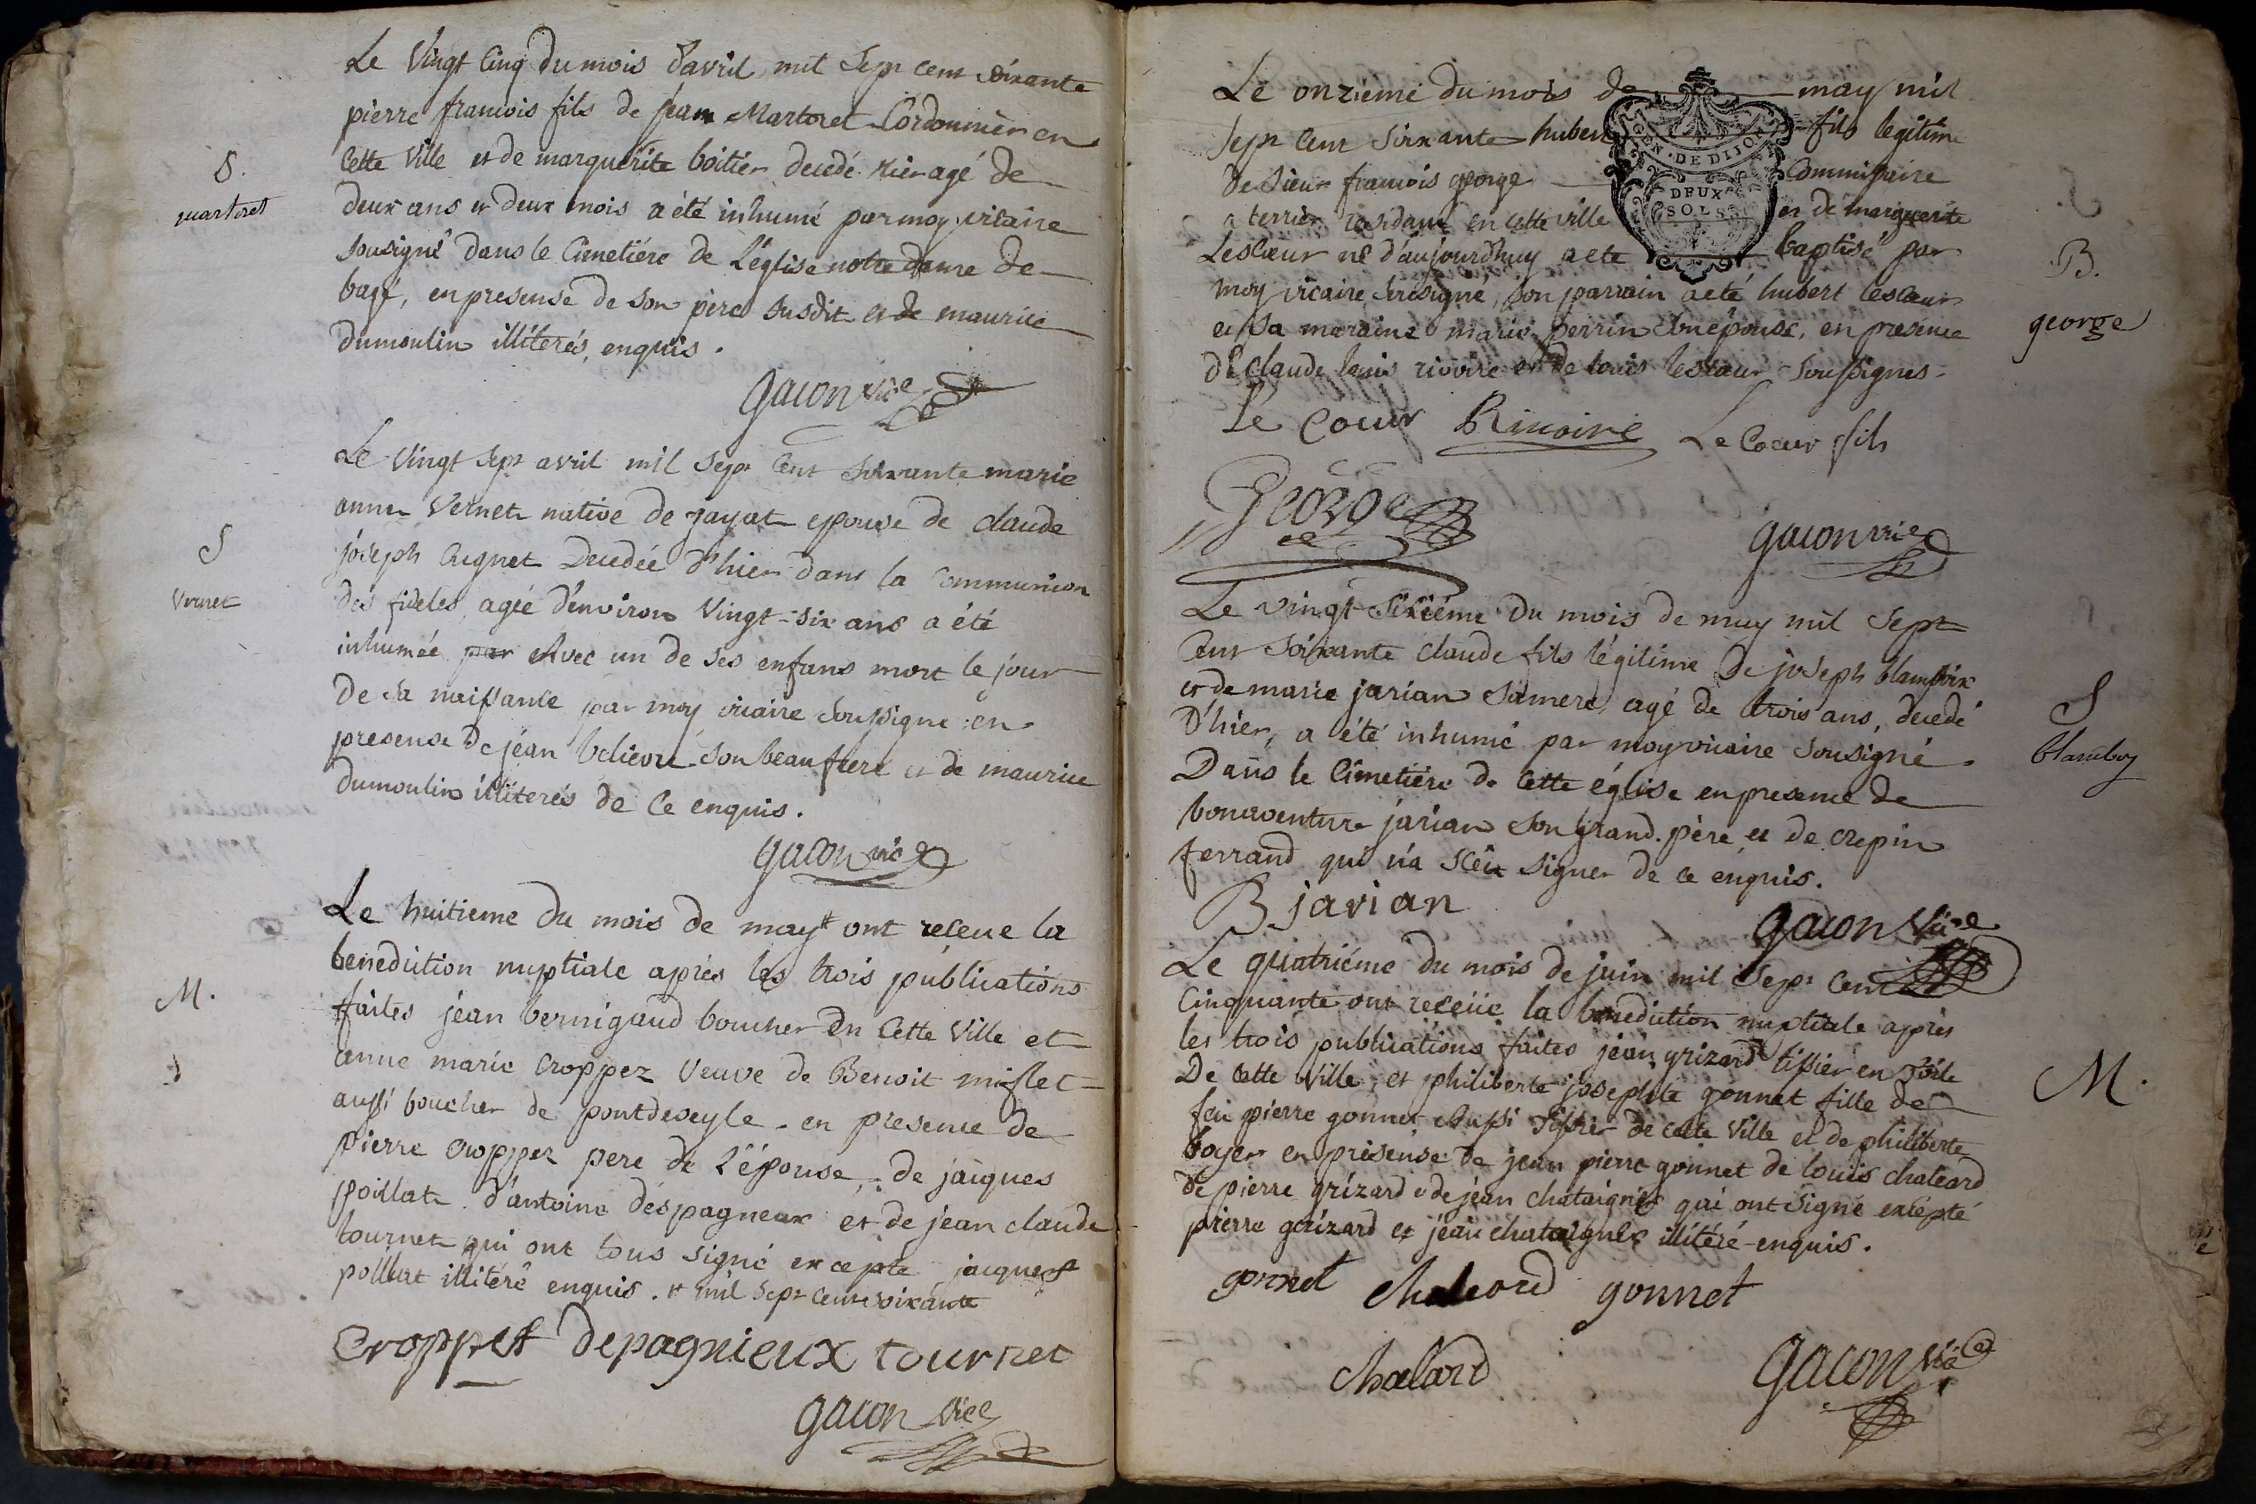 Le Vingt Cinq du mois d'avril mil Sept cent soixante
pierre francois fils de jean Martoret Cordonnier en
Cette Ville et de marguerite boitier decedé hier agé de
S.
martoret
deux ans et deux mois a été inhumé par moy vicaire
sousigné dans le Cimetiére de L'église notre dame de
bagé, en presense de son père susdit et de maurice
dumoulin illiterés, enquis.
Gacon vic^e
Le Vingt Sept avril mil Sept Cent soixante marie
anne Vernet native de jayat epouse de claude
joseph Cugnet Decedée d'hier dans la Communion
S
Vernet
des fideles, agée d'environ Vingt-six ans a été
inhumée par Avec un de ses enfans mort le jour
de sa naissance par moy vicaire soussigné en
presense de jéan believre son beaufrere et de maurice
dumoulin illiterés de Ce enquis.
gacon vic^e
Le huitieme du mois de may # ont receue la
benediction nuptiale aprés les trois publications
M.
faites jéan bernigaud boucher En Cette Ville et
anne marie Croppez Veuve de Benoit miflet
aussi boucher de pontdeveyle. en presence de
pierre Croppez pere de L'épouse, de jacques
poillat. d'antoine déspagneux et de jean claude
tournet qui ont tous signé excepté jacques
pollliat illitéré enquis. # mil Sept cent soixante
Croppet depagnieux tournet
gacon vice
Le onziéme du mois de may mil
Sept Cent Soixante hubert fils legitime
GEN. DE DIJON
DEUX
SOLS
de Sieur francois george Commissaire
a terrier residant en cette ville et de marguerite
Lescœur né d'aujourdhuy a eté baptisé par
B.
george
moy vicaire soussigné, son parrain a eté hubert lescœur
et sa maraine marie perrin son épouse, en presence
de claude louis rivoire et de louis lescœur soussignes.
Le Coeur Rivoire Le Coeur fils
George
gacon vic^e
Le vingt-Sixiéme du mois de may mil Sept
Cent Soixante claude fils légitime de joseph blampoix
et de marie jarian sa mere, agé de trois ans, decedé
S
D'hier, a été inhumé par moy vicaire sousigné
Dans le Cimetiére de Cette église en presence de
bonaventure jarian son grand-père et de crepin
ferrand qui n'a sceu signer de ce enquis.
B jarian
Gacon Vic^e
Le quatriéme du mois de juin mil Sept Cent
Cinquante ont reçeüe la benediction nuptiale aprés
les trois publications faites jéan grizard tissier en toile
M.
De cette Ville, et philiberte josephte gonnet fille de
feu pierre gonnet Aussi tissier de cette Ville et de philiberte
boyer en présense de jean pierre gonnet de louis chaleard
de pierre grizard & de jéan chataignier qui ont signé excepté
pierre grizard et jéan chataignier illitéré-enquis.
gonnet Chaleard gonnet
chalard
Gacon Vic^e